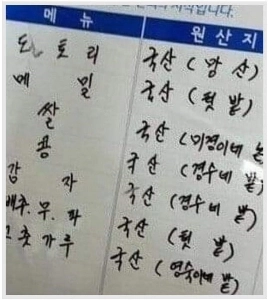 시작입니다.
메 뉴 원 산 지
도 토 리 국산 ( 앞 산 )
메 밀 국산 ( 텃 밭 )
쌀 국산 (미경이네 논
콩 국산 (경수네 밭)
감 자 국산 (경수네 밭)
배추. 무. 파 국산 ( 텃 밭 )
고 춧 가루 국산 (영숙이네 밭)